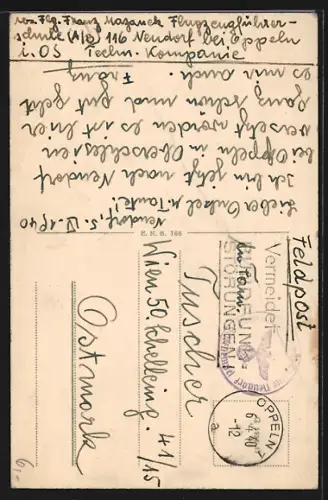 von Flg. Franz Mazanek Flugzeugführer-
schule (A/B) 116 Neudorf bei Oppeln
i. OS Techn. Kompanie
Neudorf, 5. IV. 1940
Lieber Onkel u. Tante!
Ich bin jetzt nach Neudorf
bei Oppeln in Oberschlesien
versetzt worden es ist hier
ganz schön und gut geht
es mir auch.
Franz
E. N. B. 766
Feldpost
Vermeidet
RUNDFUNK-
STÖRUNGEN
OPPELN
6.4.40
-12
a
An Fam.
Tuscher
Wien 50, Schelleing. 41/15
Ostmark
6,-